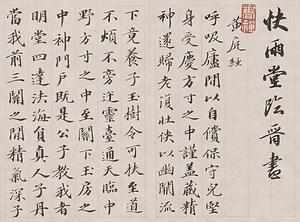 快雨堂臨晉書
黃庭經
呼吸廬間以自償保守完堅
身受慶方寸之中謹蓋藏精
神還歸老復壯俠以幽闕流
下竟養子玉樹令可扶至道
不煩不旁迕靈臺通天臨中
野方寸之中至關下玉房之
中神門戶既是公子教我者
明堂四達法海員真人子丹
當我前三關之間精氣深子